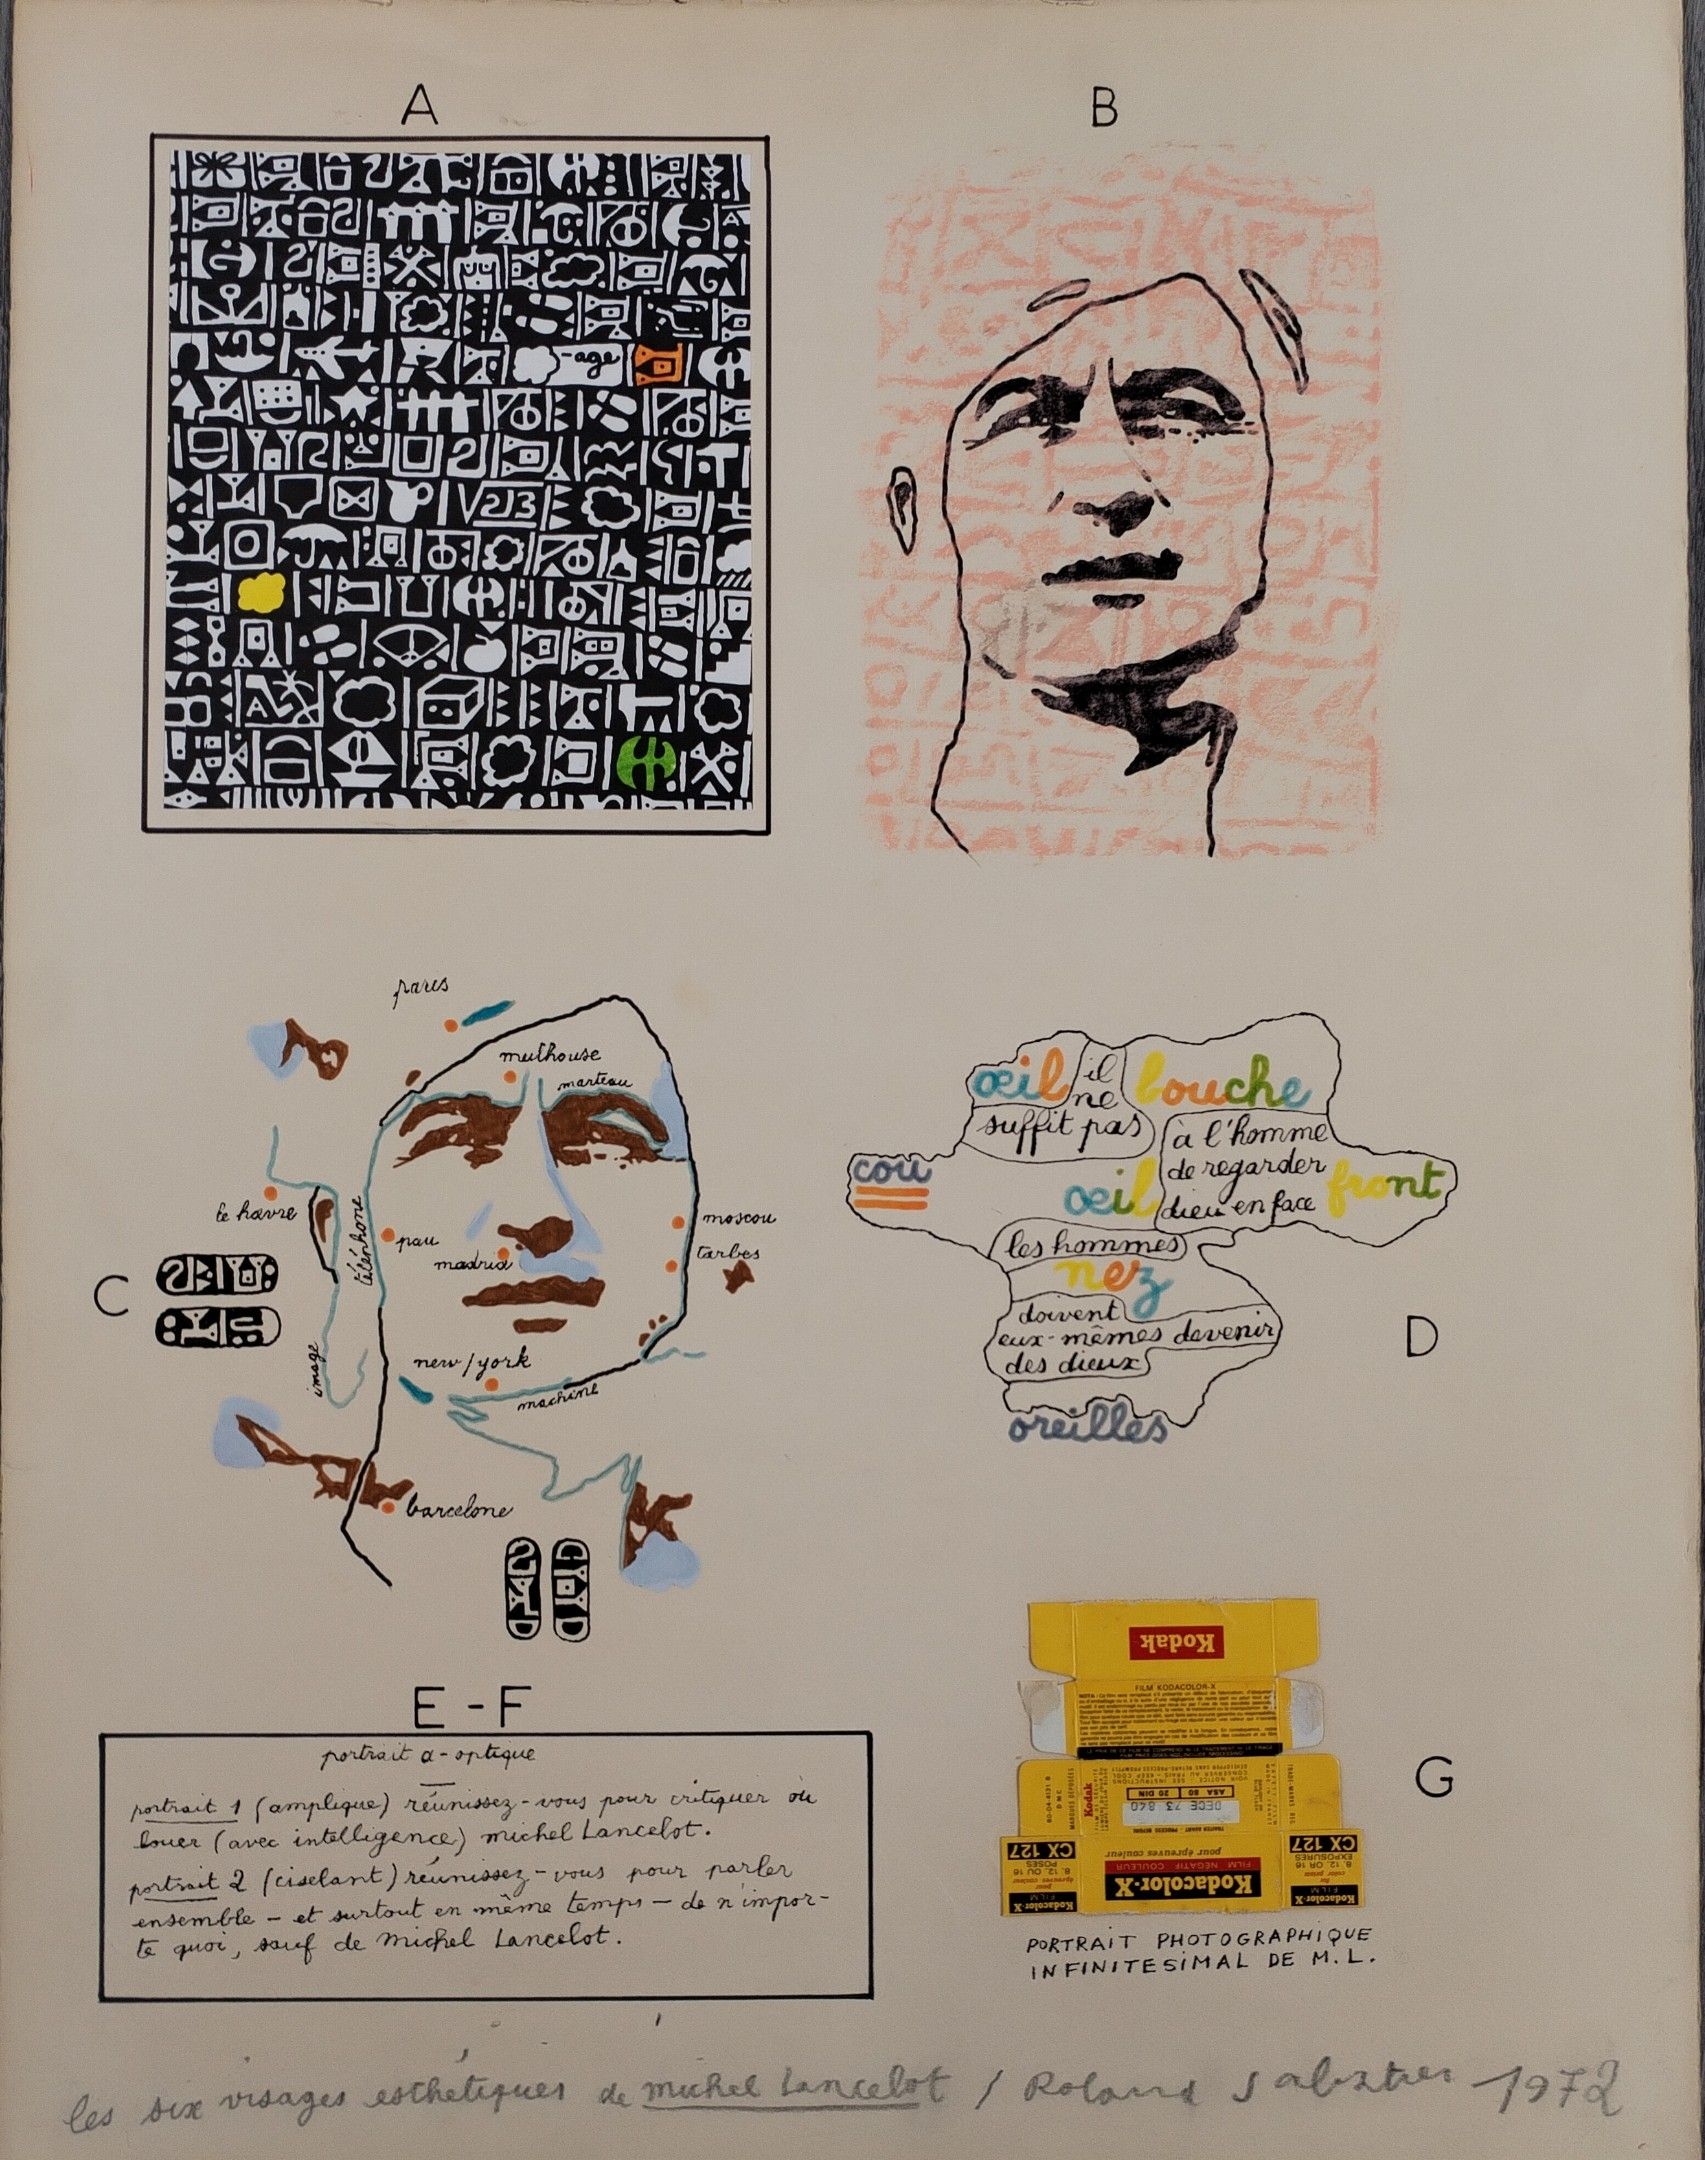 A
-age
√23
B
C
paris
mulhouse
marteau
le havre
téléphone
pau
madrid
moscou
tarbes
image
new/york
machine
barcelone
D
œil
il
ne
bouche
suffit pas
à l'homme
cou
œil
de regarder
front
dieu en face
les hommes
nez
doivent
eux-mêmes devenir
des dieux
oreilles
E-F
portrait a-optique
portrait 1 (amplique) réunissez-vous pour critiquer ou
louer (avec intelligence) michel Lancelot.
portrait 2 (ciselant) réunissez-vous pour parler
ensemble - et surtout en même temps - de n'impor-
te quoi, sauf de michel Lancelot.
G
Kodak
FILM KODACOLOR-X
VOIR NOTICE - SEE INSTRUCTIONS
Kodak
MARQUES DÉPOSÉES
ASA 80 20 DIN
DECE 73 840
pour épreuves couleur
FILM NÉGATIF COULEUR
Kodacolor-X
CX 127
8, 12, OU 16
POSES
pour
épreuves couleur
FILM
Kodacolor-X
CX 127
8, 12 OR 16
EXPOSURES
for
color prints
FILM
Kodacolor-X
PORTRAIT PHOTOGRAPHIQUE
INFINITESIMAL DE M. L.
les six visages esthétiques de michel Lancelot / Roland Sabatier 1972